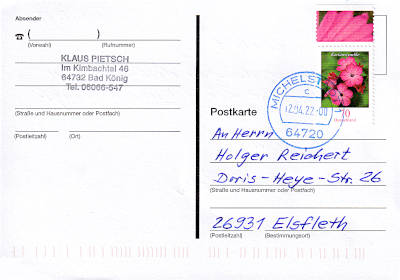 Absender
☎ ( )
(Vorwahl) (Rufnummer)
KLAUS PIETSCH
Im Kimbachtal 46
64732 Bad König
Tel. 06066-547
(Straße und Hausnummer oder Postfach)
(Postleitzahl) (Ort)
MICHELST
c
12.04.22-00
64720
10
Deutschland
Postkarte
An Herrn
Holger Reichert
Doris-Heye-Str. 26
(Straße und Hausnummer oder Postfach)
26931 Elsfleth
(Postleitzahl) (Bestimmungsort)